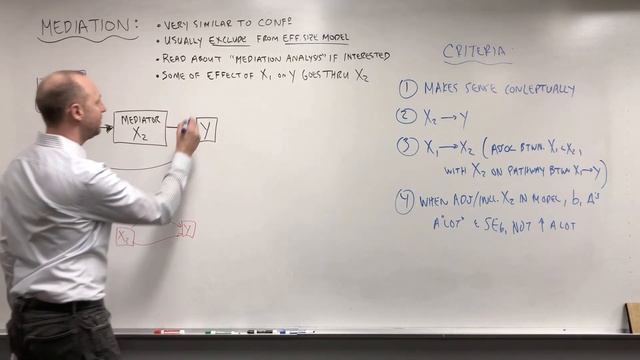 MEDIATION:
• VERY SIMILAR TO CONFᵍ
• USUALLY EXCLUDE FROM EFF. SIZE MODEL
• READ ABOUT "MEDIATION ANALYSIS" IF INTERESTED
• SOME OF EFFECT OF X₁ ON Y GOES THRU X₂
MEDIATOR
X₂
Y
X₂
Y
CRITERIA:
① MAKES SENSE CONCEPTUALLY
② X₂ → Y
③ X₁ → X₂ (ASSOC BTWN. X₁ & X₂,
WITH X₂ ON PATHWAY BTWN X₁ → Y)
④ WHEN ADJ/INCL. X₂ IN MODEL, b₁ Δ's
A "LOT" & SEb₁ NOT ↑ A LOT